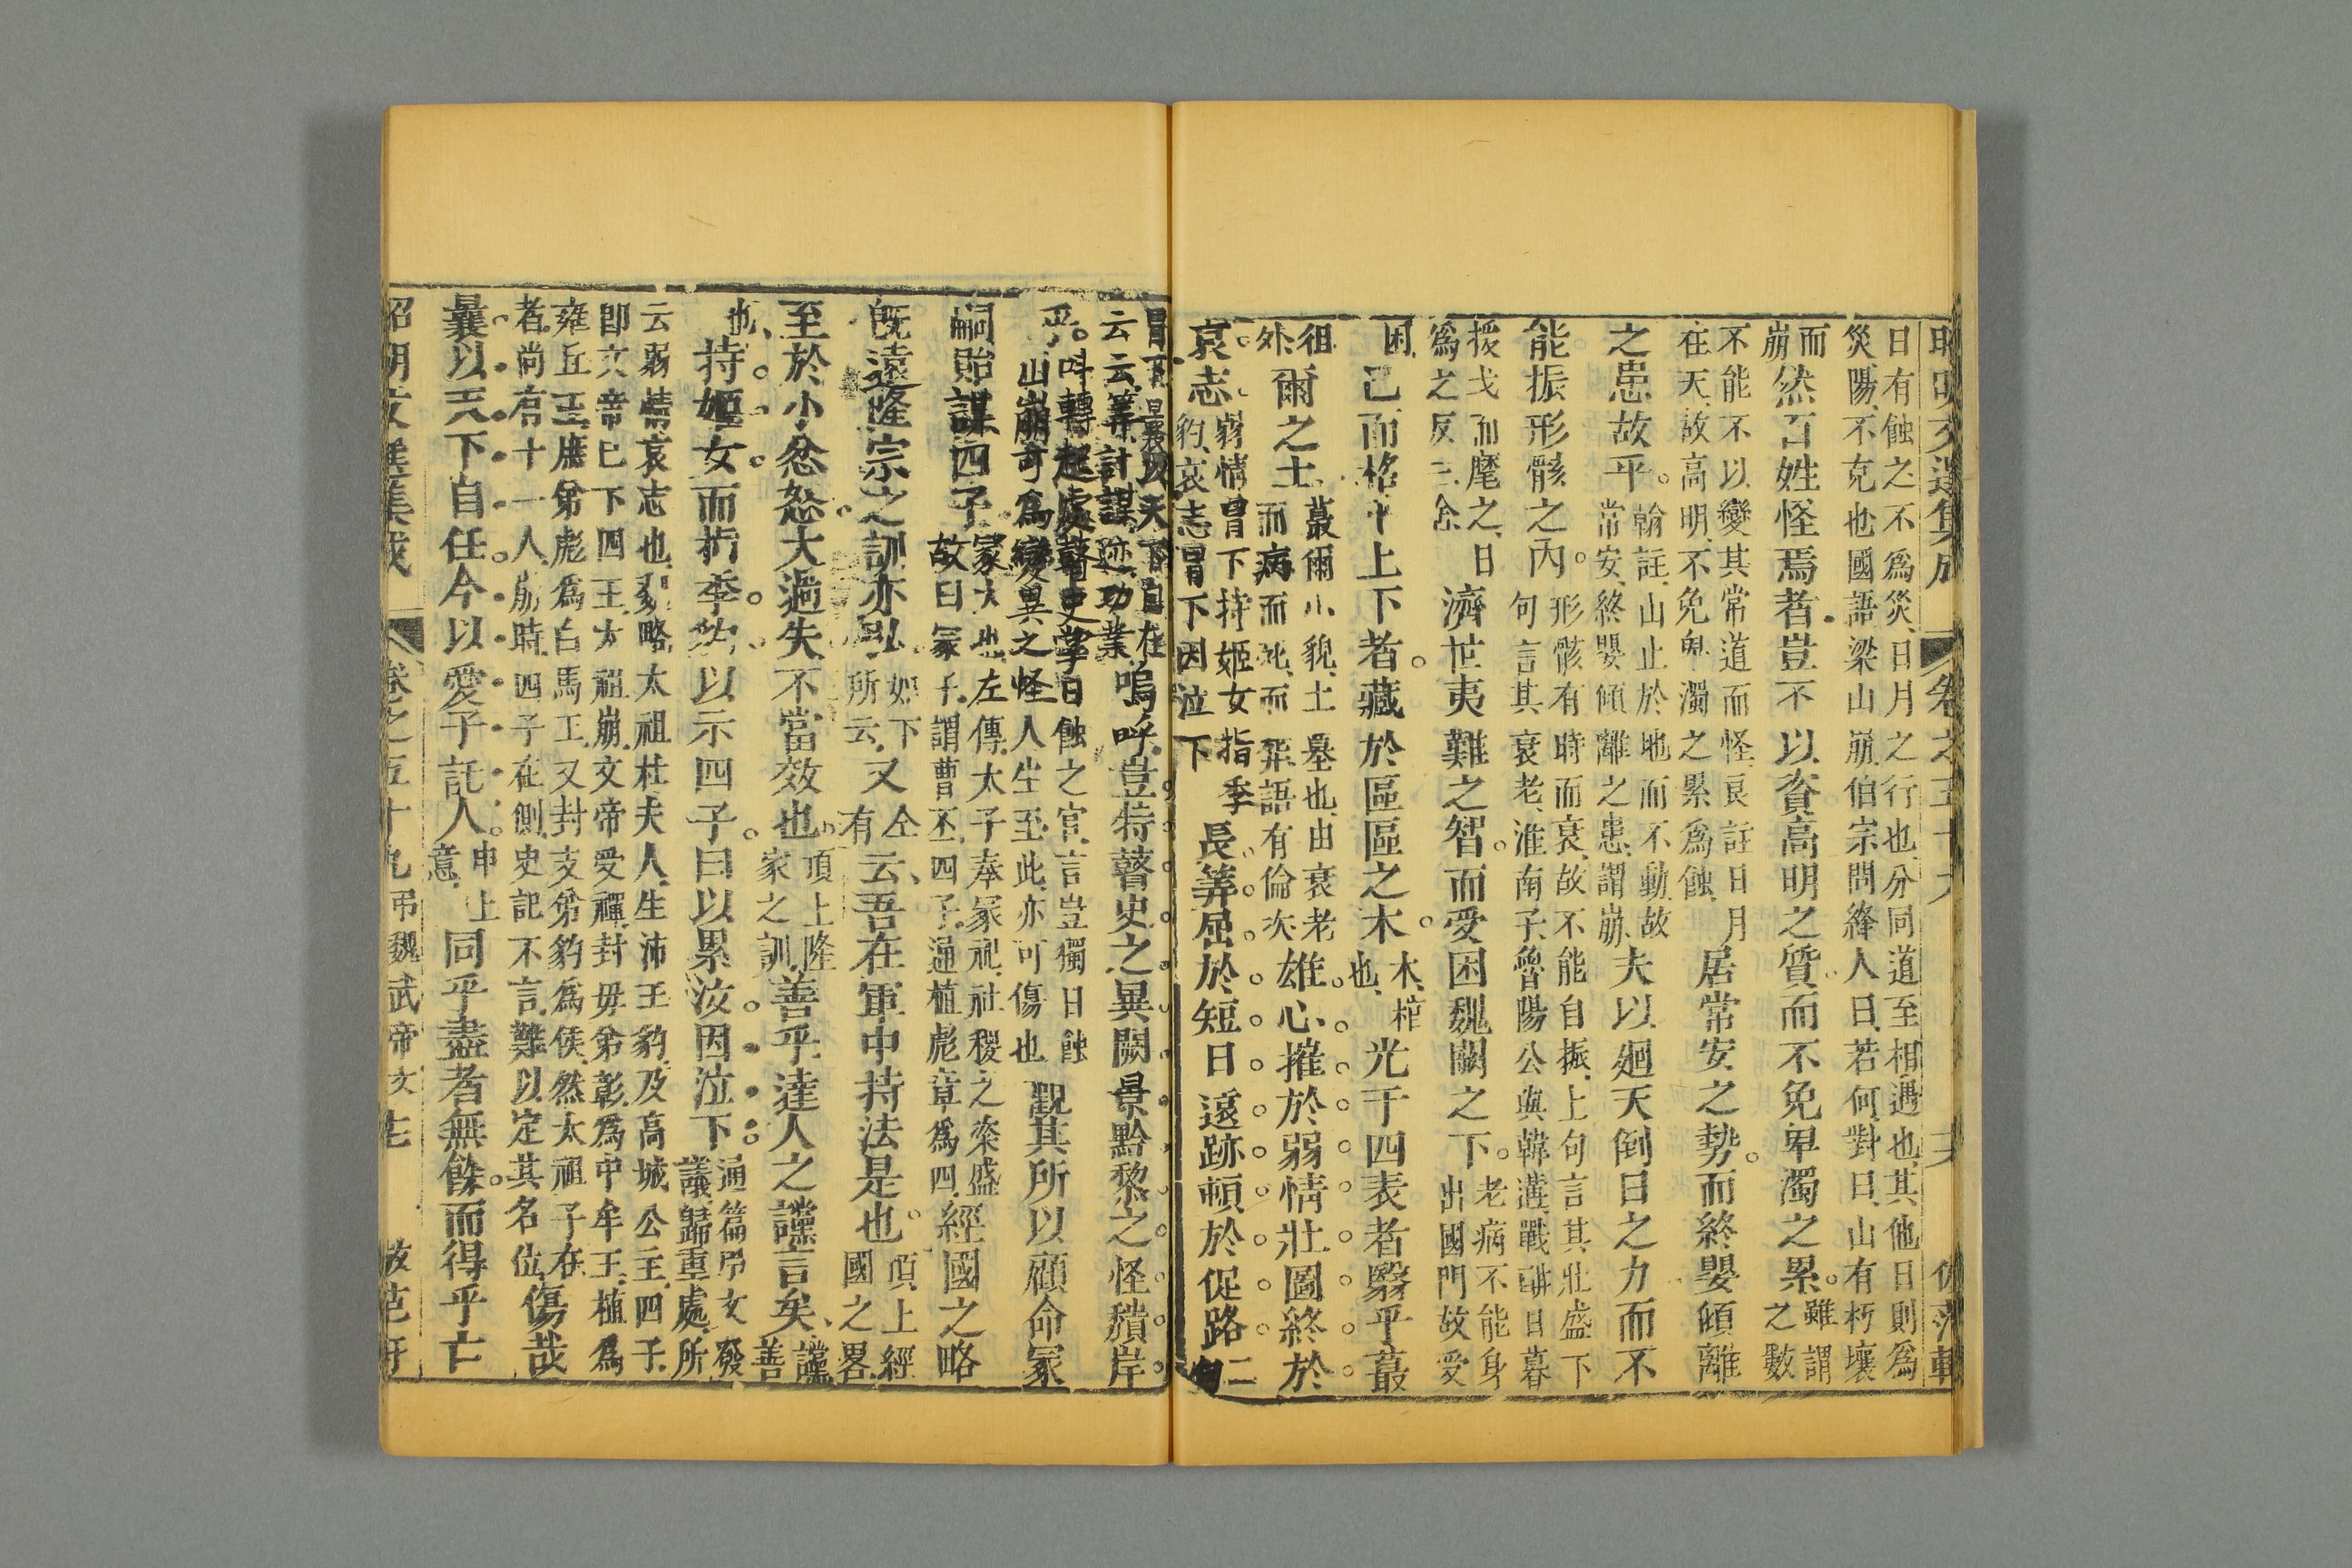 昭明文選集成 卷之五十九
日有蝕之不爲災日月之行也分同道至相遇也其他日則爲
災陽不克也國語梁山崩伯宗問絳人曰若何對曰山有朽壤
而崩然百姓怪焉者豈不以資高明之質而不免卑濁之累雖謂之數
不能不以變其常道而怪良註日月
在天故高明不免卑濁之累爲蝕居常安之勢而終嬰傾離
之患故乎翰註山止於地而不動故常安終嬰傾離之患謂崩夫以迴天倒日之力而不
能振形骸之內形骸有時而衰故不能自振上句言其壯盛下句言其衰老淮南子魯陽公與韓遘戰酣日暮
援戈而麾之日爲之反三舍濟世夷難之智而受困魏闕之下老病不能身出國門故受
困已而格乎上下者藏於區區之木木棺也光于四表者翳乎蕞
爾之土蕞爾小貌土墓也由衰老而病而死而葬語有倫次雄心摧於弱情壯圖終於
哀志弱情冒下持姬女指季豹哀志冒下因泣下長筭屈於短日遠跡頓於促路二句
冒下曩以天下自任云云筭計謀跡功業嗚呼豈特瞽史之異闕景黔黎之怪頹岸
乎叫轉起處瞽史掌日蝕之官言豈獨日蝕山崩可爲變異之怪人生至此亦可傷也觀其所以顧命冢
嗣貽謀四子冢大也左傳太子奉冢祀社稷之粢盛故曰冢子謂曹丕四子通植彪章爲四經國之略
旣遠隆家之訓亦弘如下所云又有云吾在軍中持法是也頂上經國之畧
至於小忿怒大過失不當效也頂上隆家之訓善乎達人之讜言矣讜善
也持姬女而指季豹以示四子曰以累汝因泣下通篇弔文發議歸重處所
云弱情哀志也魏略太祖杜夫人生沛王豹及高城公主四子
卽文帝已下四王太祖崩文帝受禪封母弟彰爲中牟王植爲
雍丘王庶弟彪爲白馬王又封支弟豹爲侯然太祖子在
者尚有十一人崩時四子在側史記不言難以定其名位傷哉
曩以天下自任今以愛子託人申上意同乎盡者無餘而得乎亡
昭明文選集成 卷之五十九弔魏武帝文